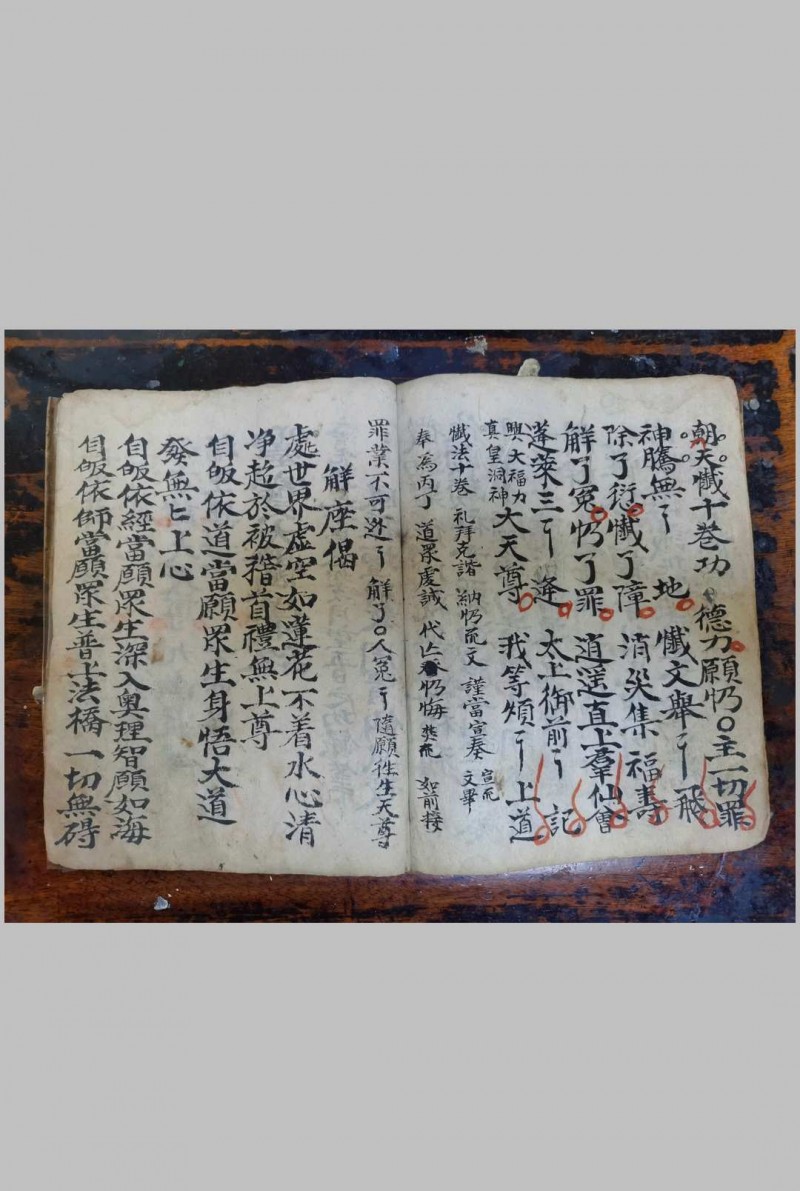 朝天懺十巻功德力願懺〇主一切罪
神騰無〻地懺文舉〻飛
除了衍懺了障消災集福壽
解了冤懺了罪逍遥直上羣仙會
蓬萊三〻逢太上御前〻記
興大福力
真皇洞神
大天尊我等頻〻上道
懺法十巻 礼拜克諧 謹當宣奏 宣疏 文畢
奉為丙丁 道眾虔誠 代 如前接
罪業不可 〻解了〇人冤〻隨願徃生天尊
解座偈
處世界虛空如蓮花不着水心清
净超於彼稽首禮無上尊
自皈依道當願眾生身悟大道
發無匕上心
自皈依經當願眾生深入奥理智願如海
自皈依師當願眾生普上法橋一切無碍